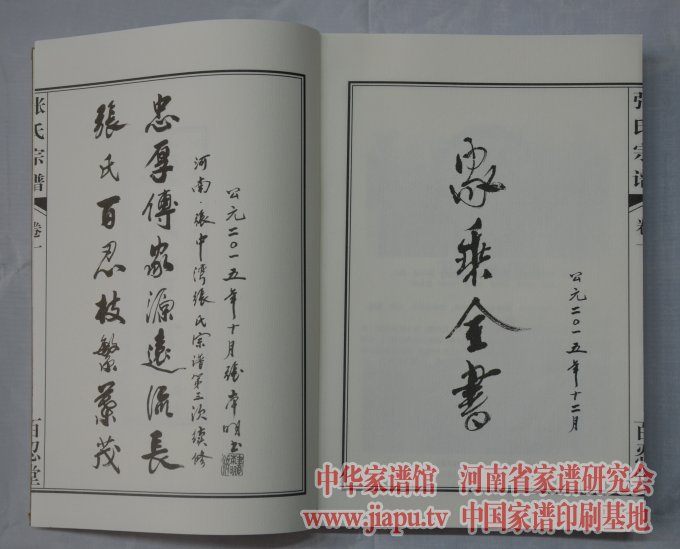 家乘全書
公元二〇一五年十二月
張氏宗譜
卷一
百忍堂
公元二〇一五年十月張本明书
河南·張中灣張氏宗谱第三次续修
忠厚傳家源遠流長
張氏百忍枝繁葉茂
張氏宗譜
卷一
百忍堂
中华家谱馆 河南省家谱研究会
www.jiapu.tv 中国家谱印刷基地